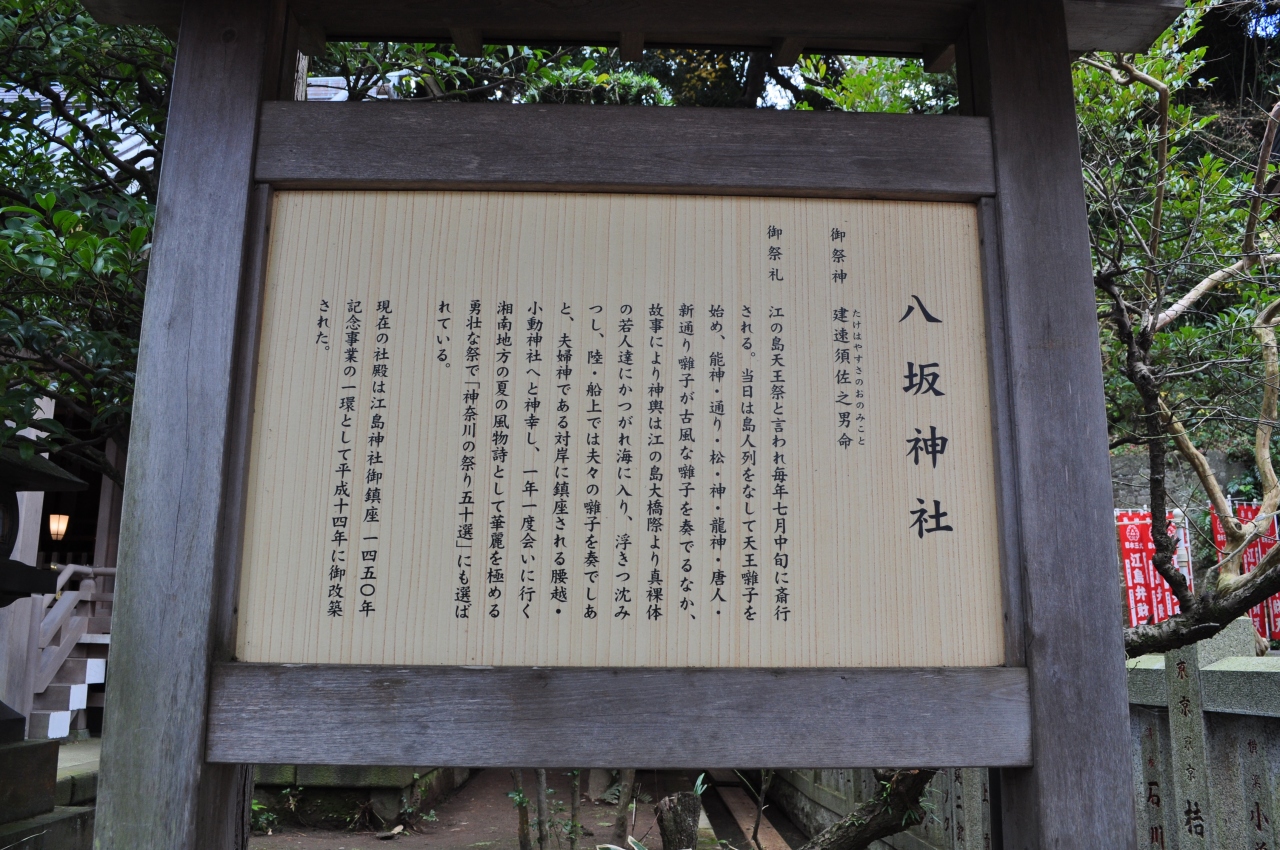 八坂神社
御祭神 建速須佐之男命
たけはやすさのおのみこと
御祭礼 江の島天王祭と言われ毎年七月中旬に斎行
される。当日は島人列をなして天王囃子を
始め、能神・通り・松・神・龍神・唐人・
新通り囃子が古風な囃子を奏でるなか、
故事により神輿は江の島大橋際より真裸体
の若人達にかつがれ海に入り、浮きつ沈み
つし、陸・船上では夫々の囃子を奏でしあ
と、夫婦神である対岸に鎮座される腰越・
小動神社へと神幸し、一年一度会いに行く
湘南地方の夏の風物詩として華麗を極める
勇壮な祭で「神奈川の祭り五十選」にも選ば
れている。
現在の社殿は江島神社御鎮座 一四五〇年
記念事業の一環として平成十四年に御改築
された。
江島弁財
東京
石川
小